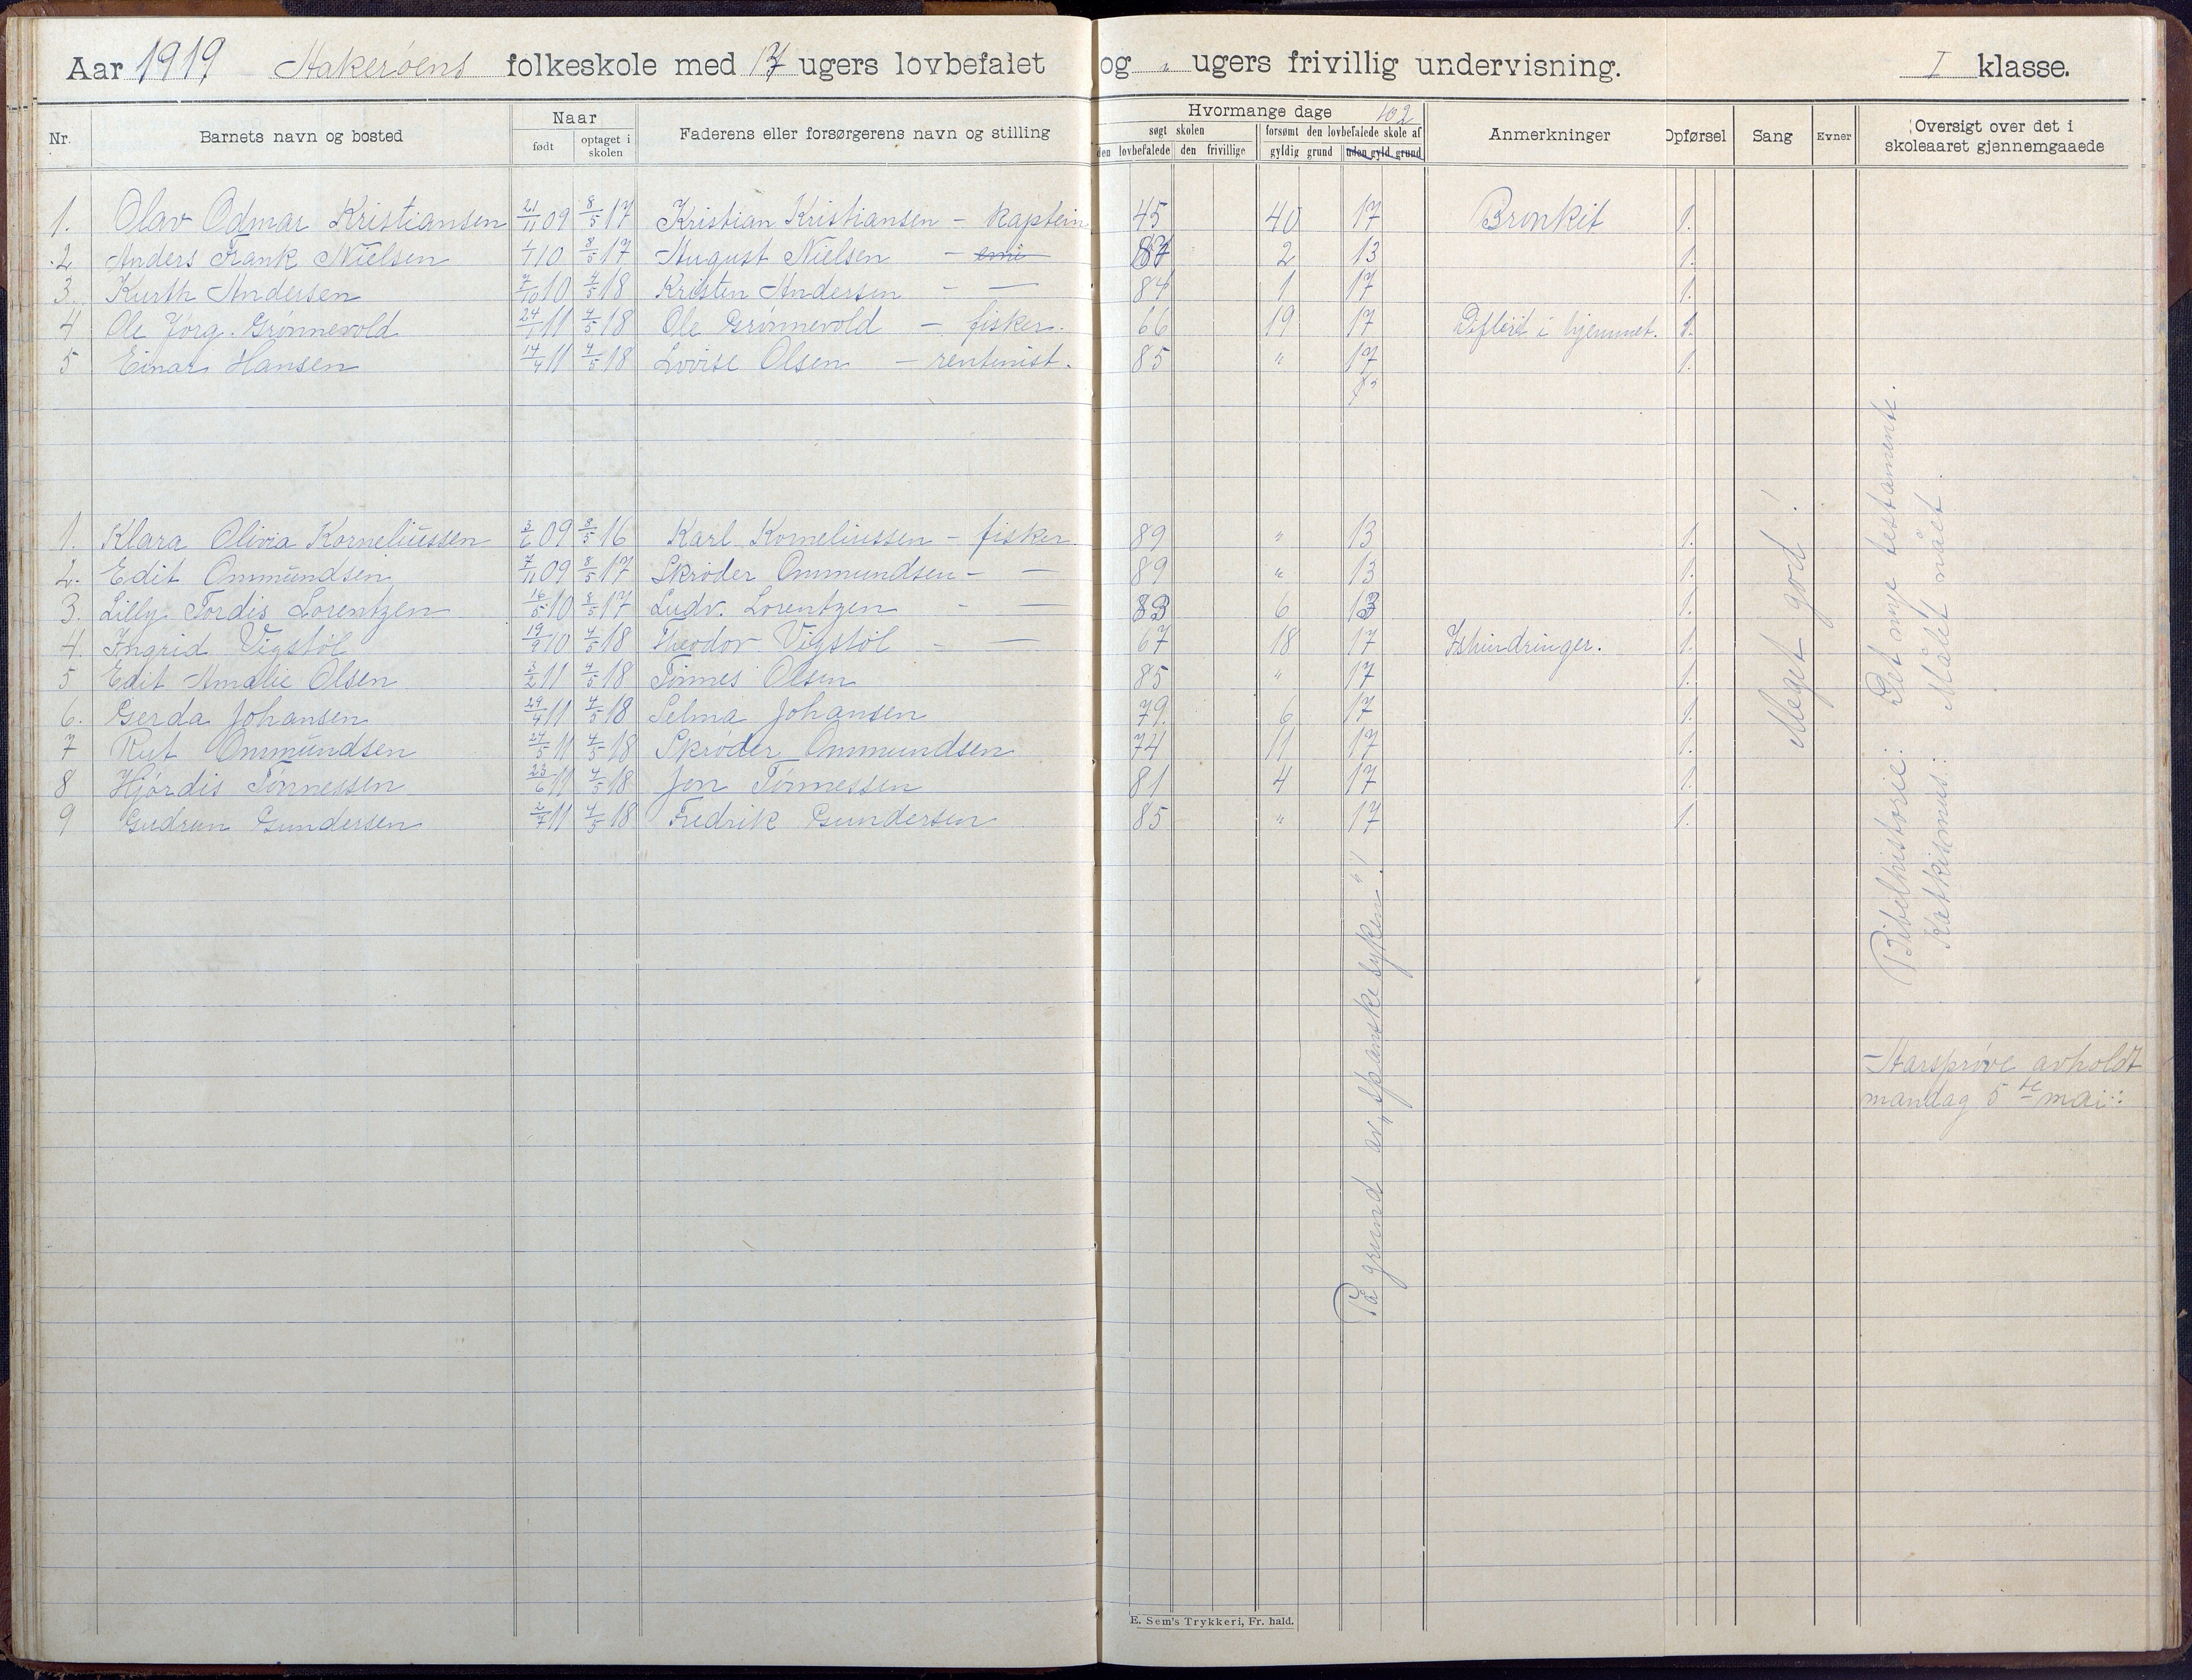 Aar 1919 Aakerøens folkeskole med 17 ugers lovbefalet og " ugers frivillig undervisning. I klasse.
Nr. Barnets navn og bosted Naar født optaget i skolen Faderens eller forsørgerens navn og stilling Hvormange dage 102 søgt skolen den lovbefalede den frivillige forsømt den lovbefalede skole af gyldig grund uden gyld. grund Anmerkninger Opførsel Sang Evner Oversigt over det i skoleaaret gjennemgaaede
1. Olav Odmar Kristiansen 21/11 09 8/5 17 Kristian Kristiansen - kaptein 45 40 17 Bronkit 1.
2 Anders Frank Nielsen 1/1 10 8/5 17 August Nielsen - 87 2 13 1.
3. Kurth Andersen 7/10 10 4/5 18 Kristen Andersen - — 84 1 17 1.
4 Ole Jørg. Grønnevold 24/1 11 4/5 18 Ole Grønnevold - fisker. 66 19 17 Difterit i hjemmet. 1.
5 Einar Hansen 14/4 11 4/5 18 Lovise Olsen - rentenist. 85 " 17 1.
1. Klara Olivia Korneliussen 3/6 09 8/5 16 Karl Korneliussen - fisker 89 " 13 1.
2. Edit Ommundsen 7/11 09 8/5 17 Skrøder Ommundsen - — 89 " 13 1.
3. Lilly Tordis Lorentzen 16/5 10 8/5 17 Ludv. Lorentzen - — 83 6 13 1.
4. Ingrid Vigstøl 19/9 10 4/5 18 Theodor Vigstøl - — 67 18 17 Ishindringer. 1.
5 Edit Amalie Olsen 3/2 11 4/5 18 Tønnes Olsen 85 " 17 1.
6. Gerda Johansen 29/4 11 4/5 18 Selma Johansen 79. 6 17 1.
7 Rut Ommundsen 24/5 11 4/5 18 Skrøder Ommundsen 74 11 17 1.
8 Hjørdis Tønnessen 23/6 11 4/5 18 Jon Tønnessen 81 4 17 1.
9 Gudrun Gundersen 2/7 11 4/5 18 Fredrik Gundersen 85 " 17 1.
På grund av "spanskesyken"!
Meget god!
Bibelhistorie: Det nye testamente.
Katkismus: Målet nået.
- Aarsprøve avholdt
mandag 5te mai:
E. Sem's Trykkeri, Fr. hald.